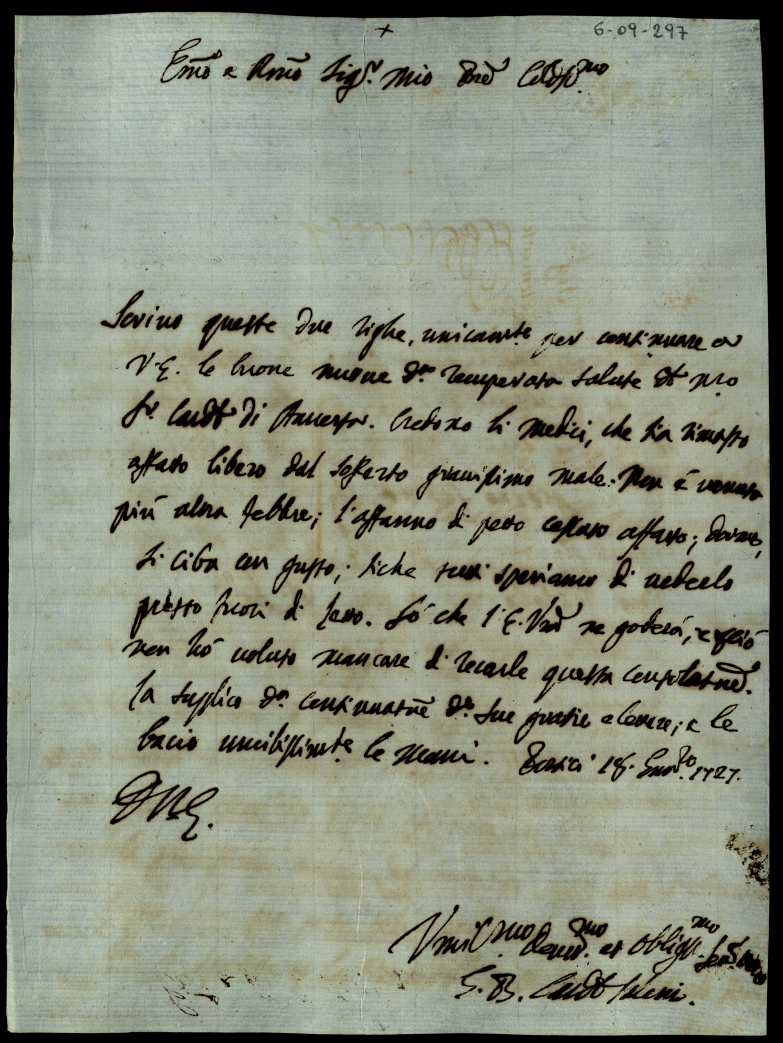 6-09-297
+
Emõ e Rmõ Sig.r mio Prõn Col.mo
Scrivo queste due righe, unicam.te per continuare a
V. E. le buone nuove d.a recuperata salute del nro
S.r Card.l di Anversa. Credono li medici, che sia rimasto
affatto libero dal sofferto gravissimo male. Non è venuta
più altra febbre; l'affanno di petto cessato affatto; dorme,
si ciba con gusto; siche tutti speriamo di vederlo
presto fuori di letto. Sò che l'E. Vrã ne goderà, e perciò
non hò voluto mancare di recarle questa consolatne.
la supplico d.a continuatne d.e sue gratie a levare; e le
bacio umilissim.te le mani. 18. Genn.ro 1727.
D V. E.
Umil.mo dev.mo et oblig.mo Ser.
G. B. Card.l Salerni.